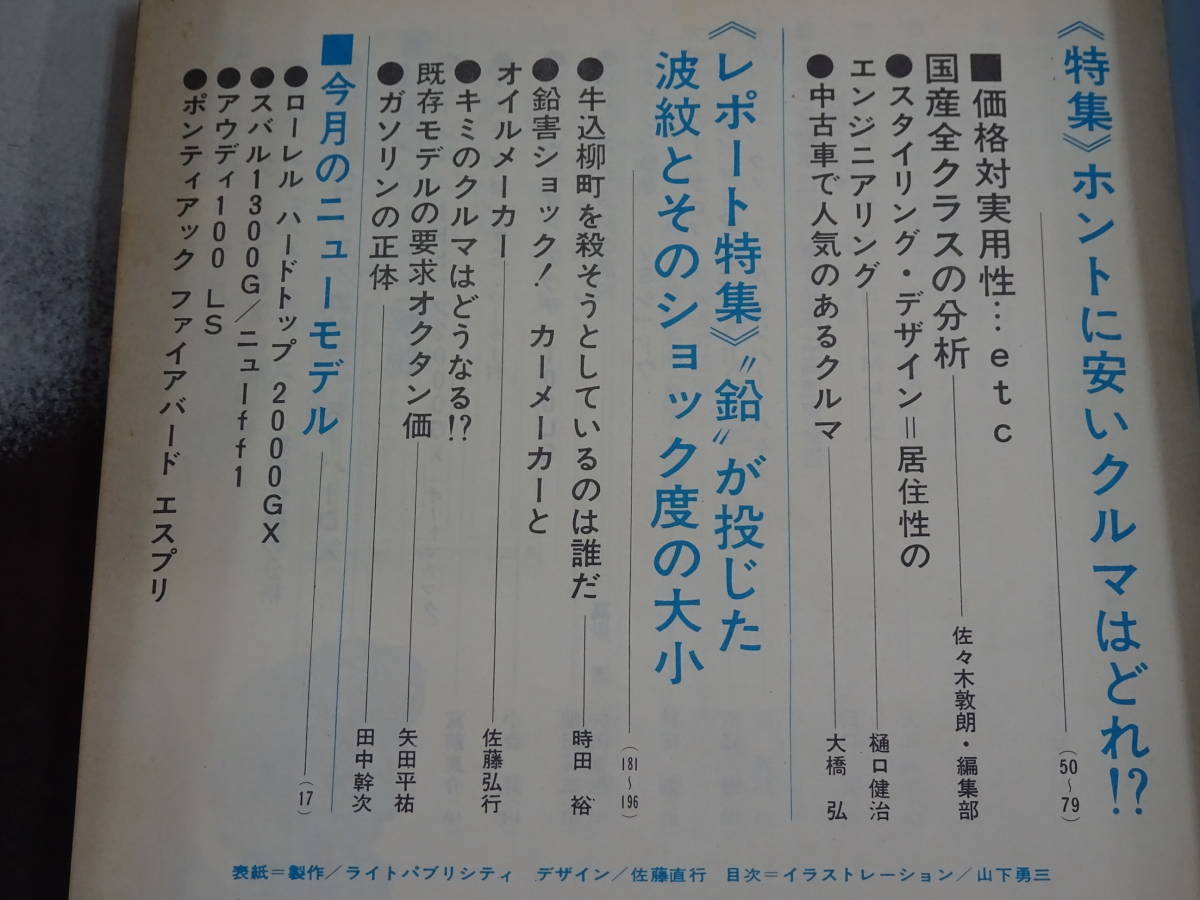 《特集》ホントに安いクルマはどれ!?
(50〜79)
■価格対実用性…etc
国産全クラスの分析
佐々木敦朗・編集部
●スタイリング・デザイン＝居住性の
エンジニアリング
樋口健治
●中古車で人気のあるクルマ
大橋 弘
《レポート特集》〝鉛〟が投じた
波紋とそのショック度の大小
(181〜196)
●牛込柳町を殺そうとしているのは誰だ
時田 裕
●鉛害ショック! カーメーカーと
オイルメーカー
佐藤弘行
●キミのクルマはどうなる!?
既存モデルの要求オクタン価
矢田平祐
●ガソリンの正体
田中幹次
■今月のニューモデル
(17)
●ローレル ハードトップ 2000GX
●スバル1300G／ニューff1
●アウディ100 LS
●ポンティアック ファイアバード エスプリ
表紙＝製作／ライトパブリシティ デザイン／佐藤直行 目次＝イラストレーション／山下勇三